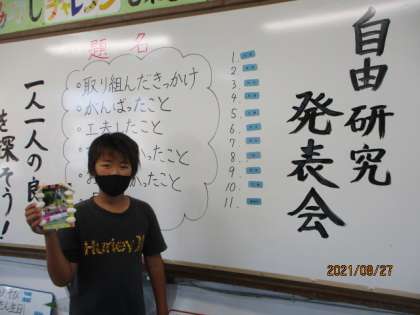 チャレンジ
自由研究
発表会
題名
○取り組んだきっかけ
○がんばったこと
○工夫したこと
かったこと
かったこと
1.
2.
3.
4.
5.
6.
7.
8.
9.
10.
11.
一人一人の良
を探そう！
Hurley
2021/08/27